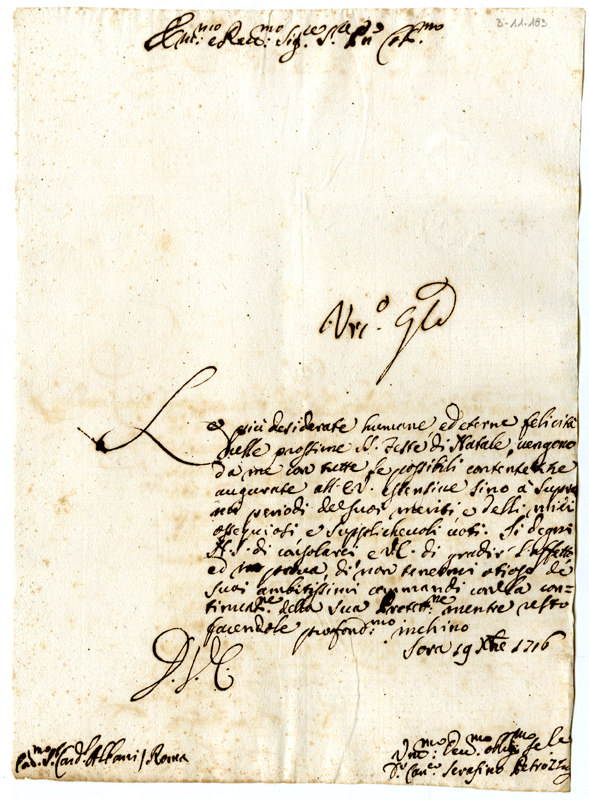 3-11-183
Em.mo e Rev.mo Sig.re
Le più desiderate humane ed eterne felicità
nelle prossime S. Feste di Natale, vengono
da me con tutte le possibili contentezze
augurate all'E.V. estensive sino à supre
mi periodi de suoi meriti e delli miei
ossequiosi e supplichevoli voti. Si degni
di consolarci e V.E. di gradir l'affetto
ed di non tenermi otioso de
suoi ambitissimi commandi con la con=
tinuat.ne della sua Protett.ne mentre resto
facendole profond.mo inchino
Sora 19 Xbre 1716
D.V.E.
S. Card. Albani / Roma
Serafino Petrozzi